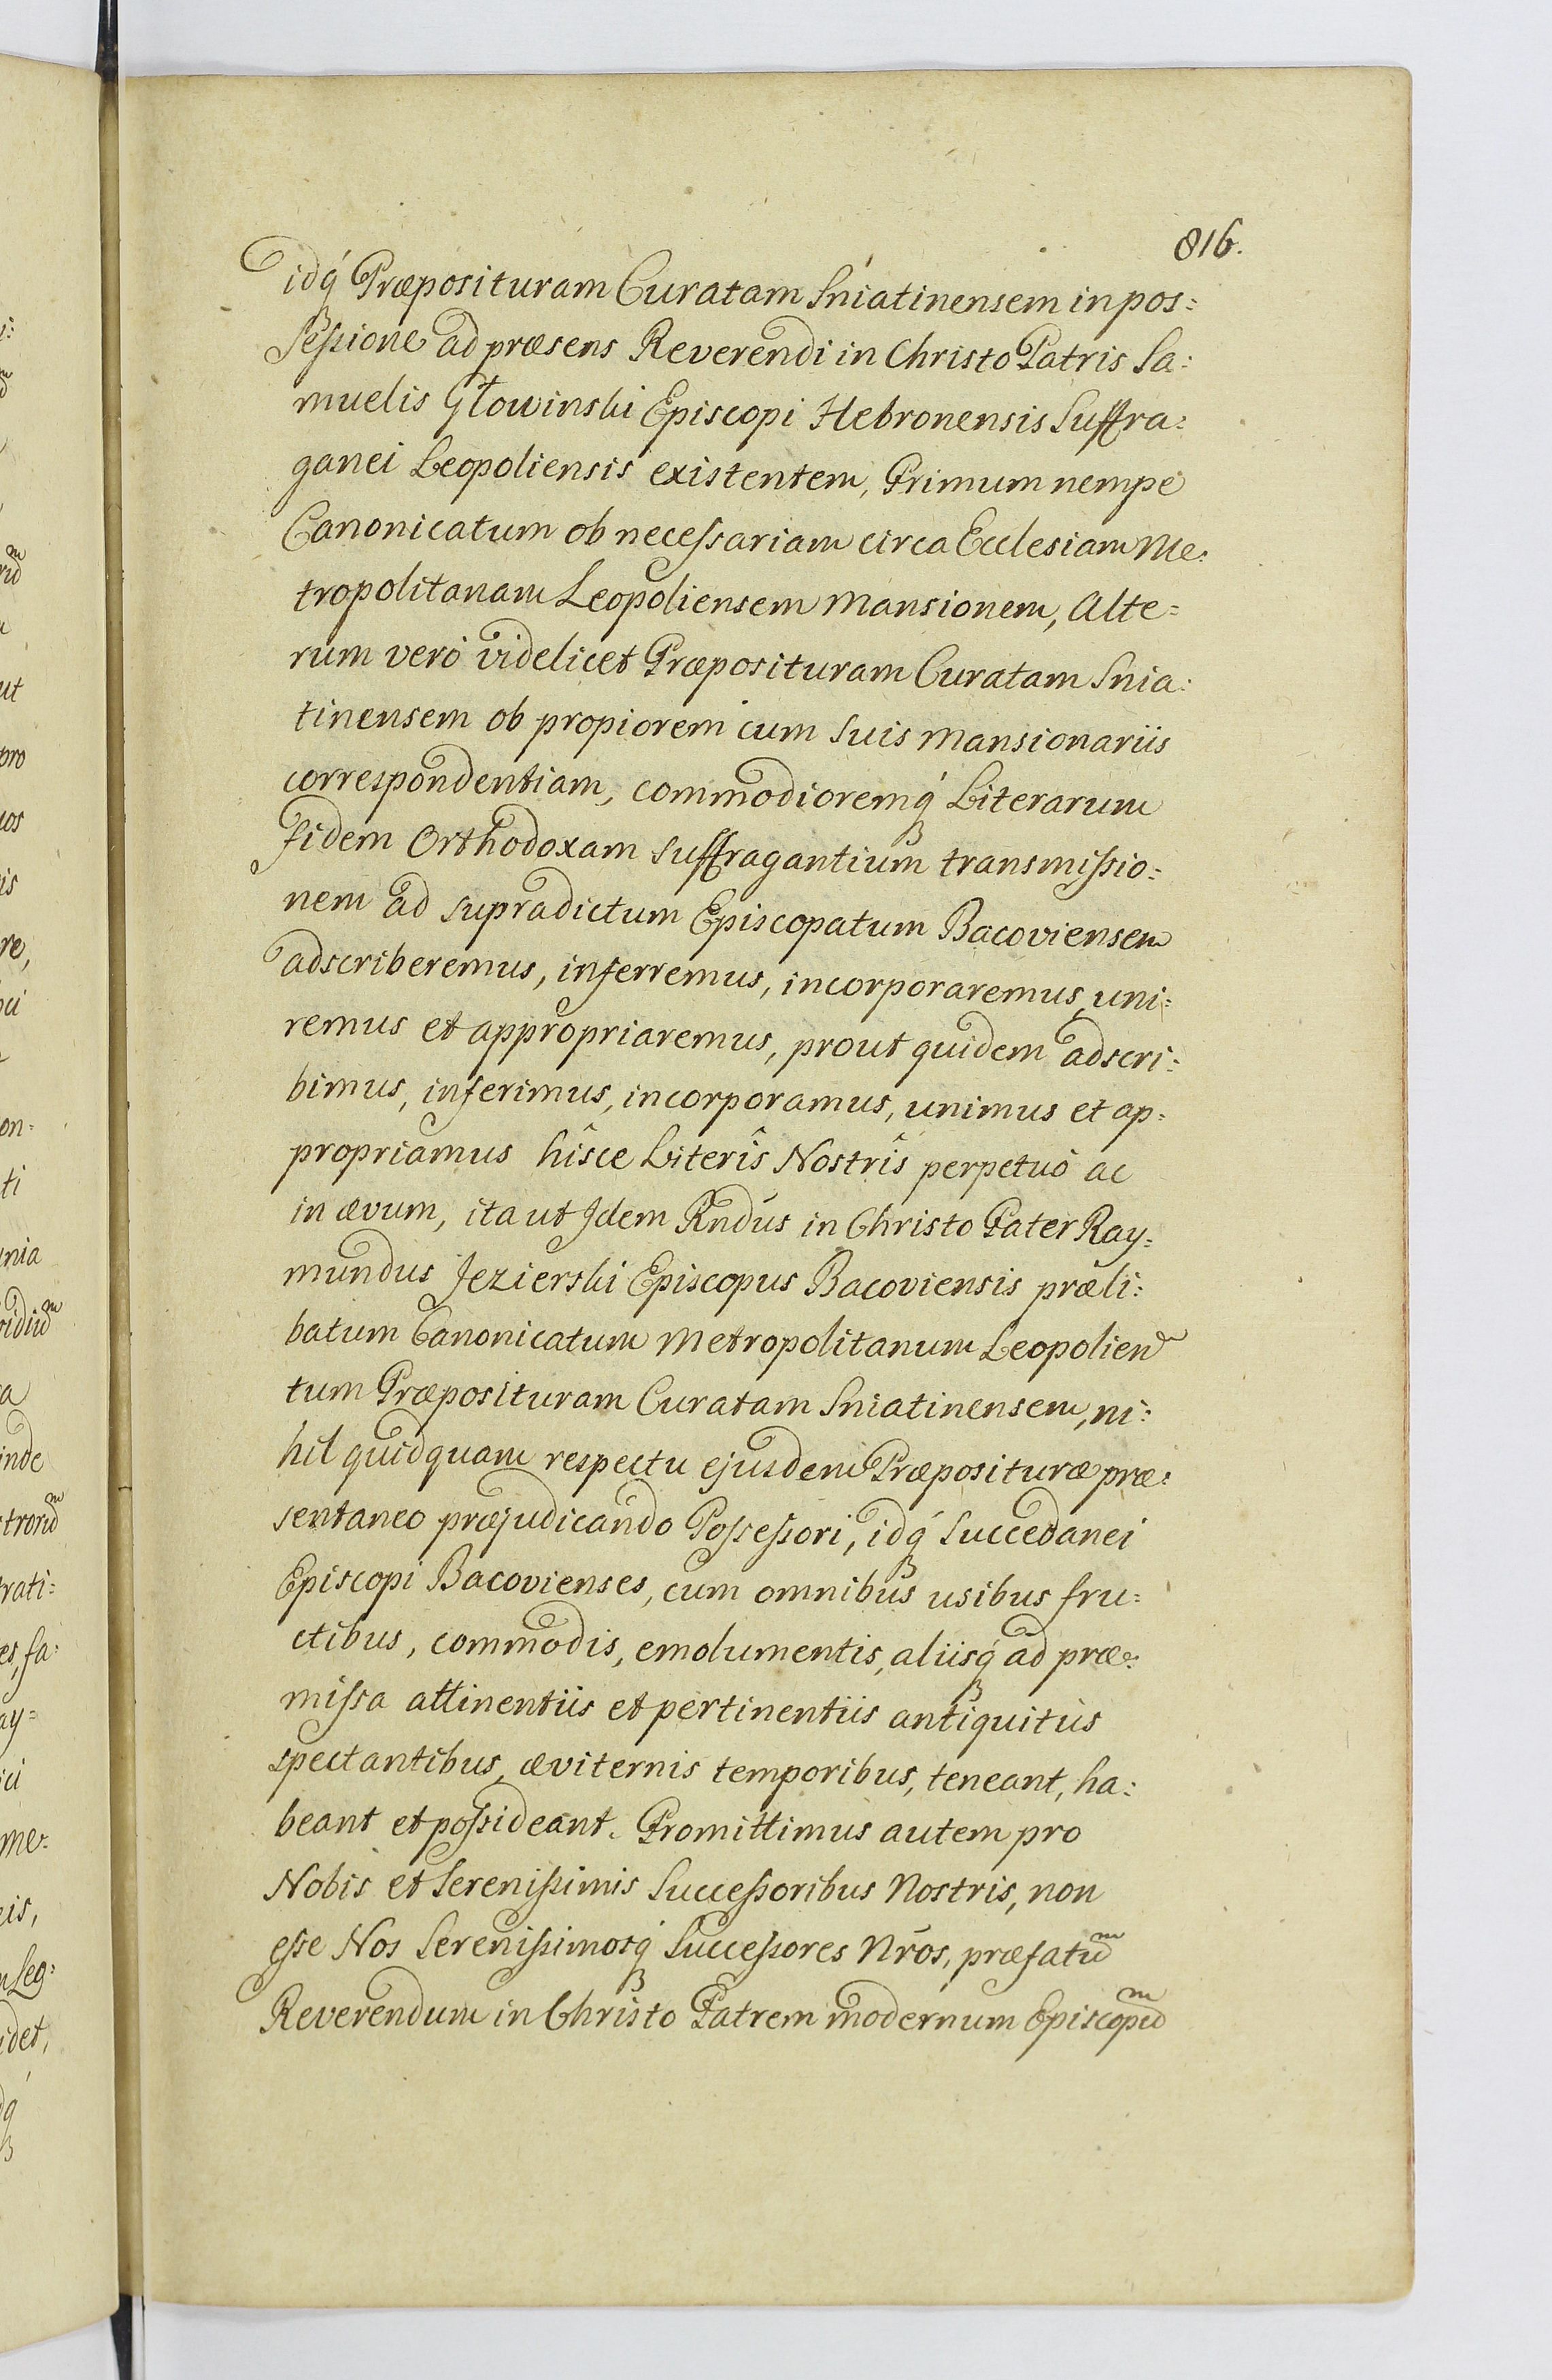 816.
idq́ Præposituram Curatam Sniatinensem in pos=
sessione ad præsens Reverendi in Christo Patris Sa:
muelis Głowinski Episcopi Hebronensis Suffra:
ganei Leopoliensis existentem, Primum nempe
Canonicatum ob necessariam circa Ecclesiam Me:
tropolitanam Leopoliensem Mansionem, Alte=
rum verò videlicet Præposituram Curatam Snia:
tinensem ob propiorem cum suis Mansionariis
correspondentiam, commodioremq́ Literarum
fidem Orthodoxam suffragantium transmissio:
nem ad supradictum Episcopatum Bacoviensem
adscriberemus, inferremus, incorporaremus, uni:
remus et appropriaremus, prout quidem adscri:
bimus, inferimus, incorporamus, unimus et ap:
propriamus hîsce Literîs Nostrîs perpetuò ac
in ævum, ita ut Idem Rndus in Christo Pater Ray:
mundus Jezierski Episcopus Bacoviensis præli:
batum Canonicatum Metropolitanum Leopolien
tum Præposituram Curatam Sniatinensem, ni:
hil quidquam respectu ejusdem Præposituræ præ:
sentaneo præjudicando Possessori, idq́ Succedanei
Episcopi Bacovienses, cum omnibus usibus fru=
ctibus, commodis, emolumentis, aliisq́ ad præ:
missa attinentiis et pertinentiis antiquitùs
spectantibus, æviternis temporibus, teneant, ha:
beant et possideant. Promittimus autem pro
Nobis et Serenissimis Successoribus Nostris, non
esse Nos Serenissimosq́ Successores Nros, præfatu̅m
Reverendum in Christo Patrem modernum Episcopu̅m